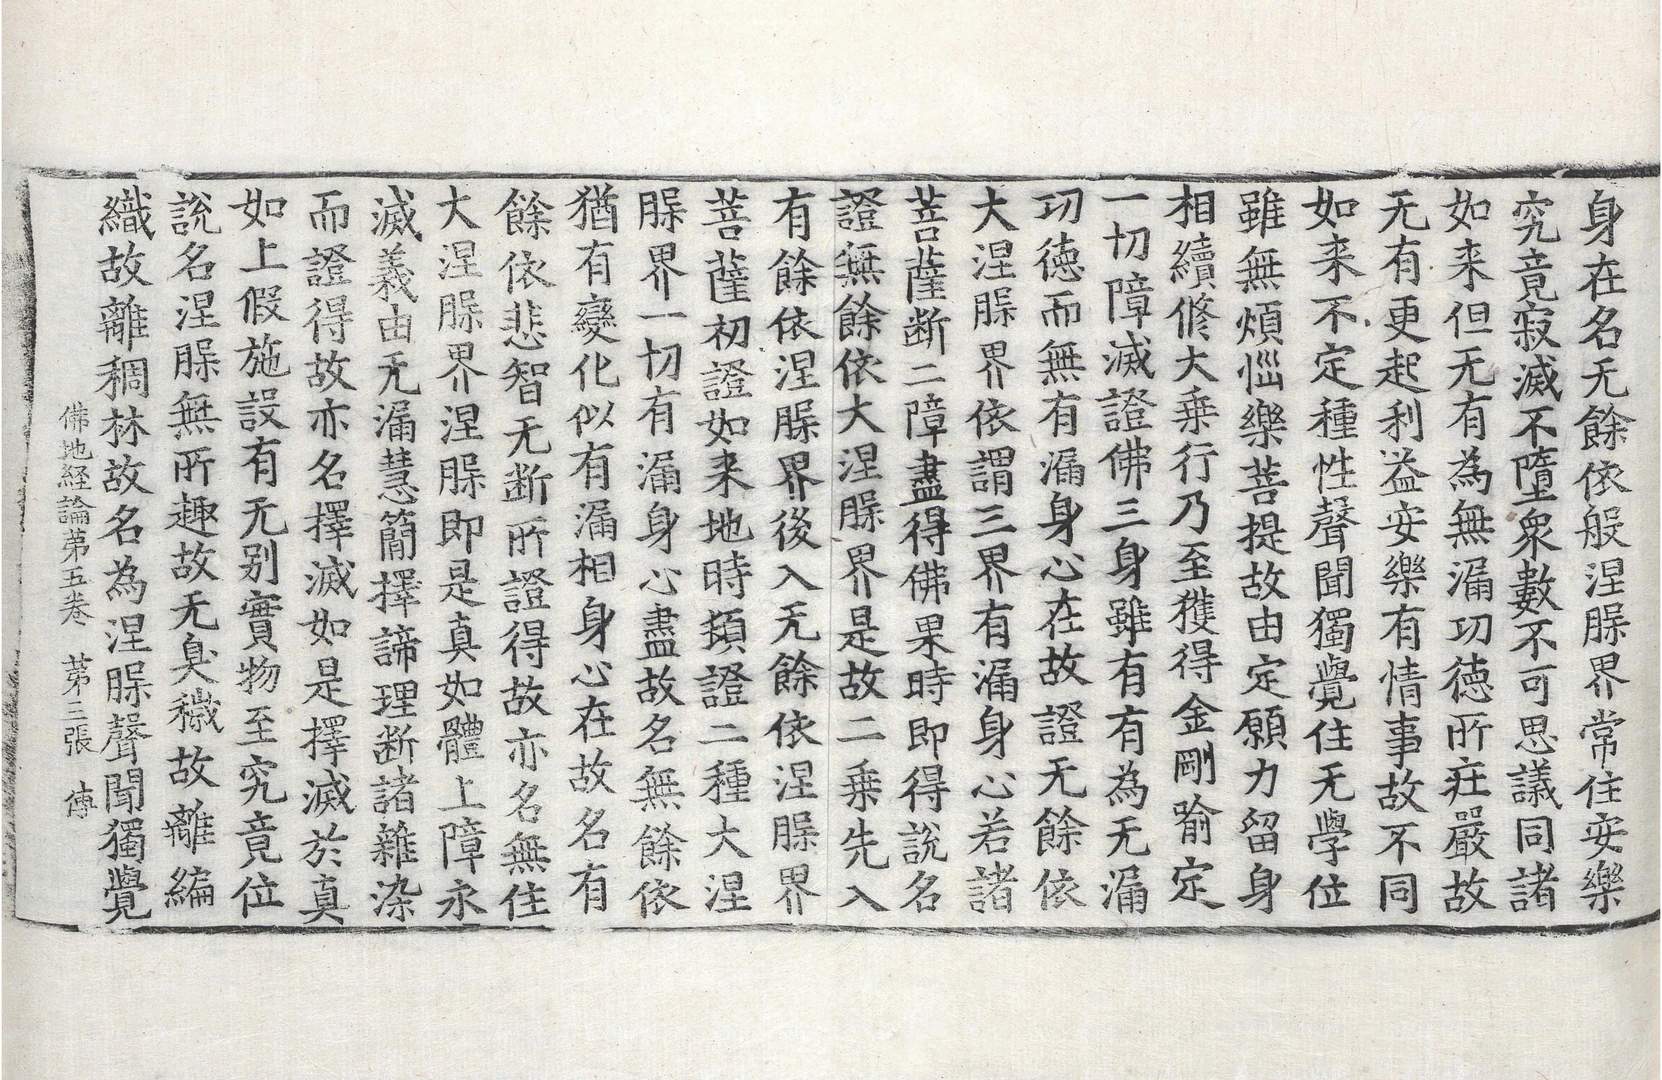 身在名无餘依般涅槃界常住安樂
究竟寂滅不墮衆數不可思議同諸
如来但无有為無漏功德所荘嚴故
无有更起利益安樂有情事故不同
如来不定種性聲聞獨覺住无學位
雖無煩惱樂菩提故由定願力留身
相續修大乗行乃至獲得金剛喻定
一切障滅證佛三身雖有有為无漏
功徳而無有漏身心在故證无餘依
大涅槃界依謂三界有漏身心若諸
菩薩断二障盡得佛果時即得説名
證無餘依大涅槃界是故二乗先入
有餘依涅槃界後入无餘依涅槃界
菩薩初證如来地時頓證二種大涅
槃界一切有漏身心盡故名無餘依
猶有變化似有漏相身心在故名有
餘依悲智无断所證得故亦名無住
大涅槃界涅槃即是真如體上障永
滅義由无漏慧簡擇諦理断諸雜染
而證得故亦名擇滅如是擇滅於真
如上假施設有无别實物至究竟位
説名涅槃無所趣故无臭穢故離編
織故離稠林故名為涅槃聲聞獨覺
佛地経論苐五卷 苐三張 傳